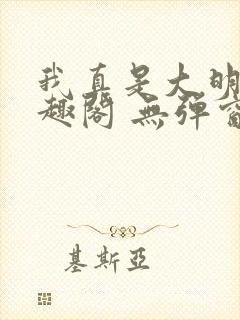 我真是大明
趣閣 無彈窗
基斯亞